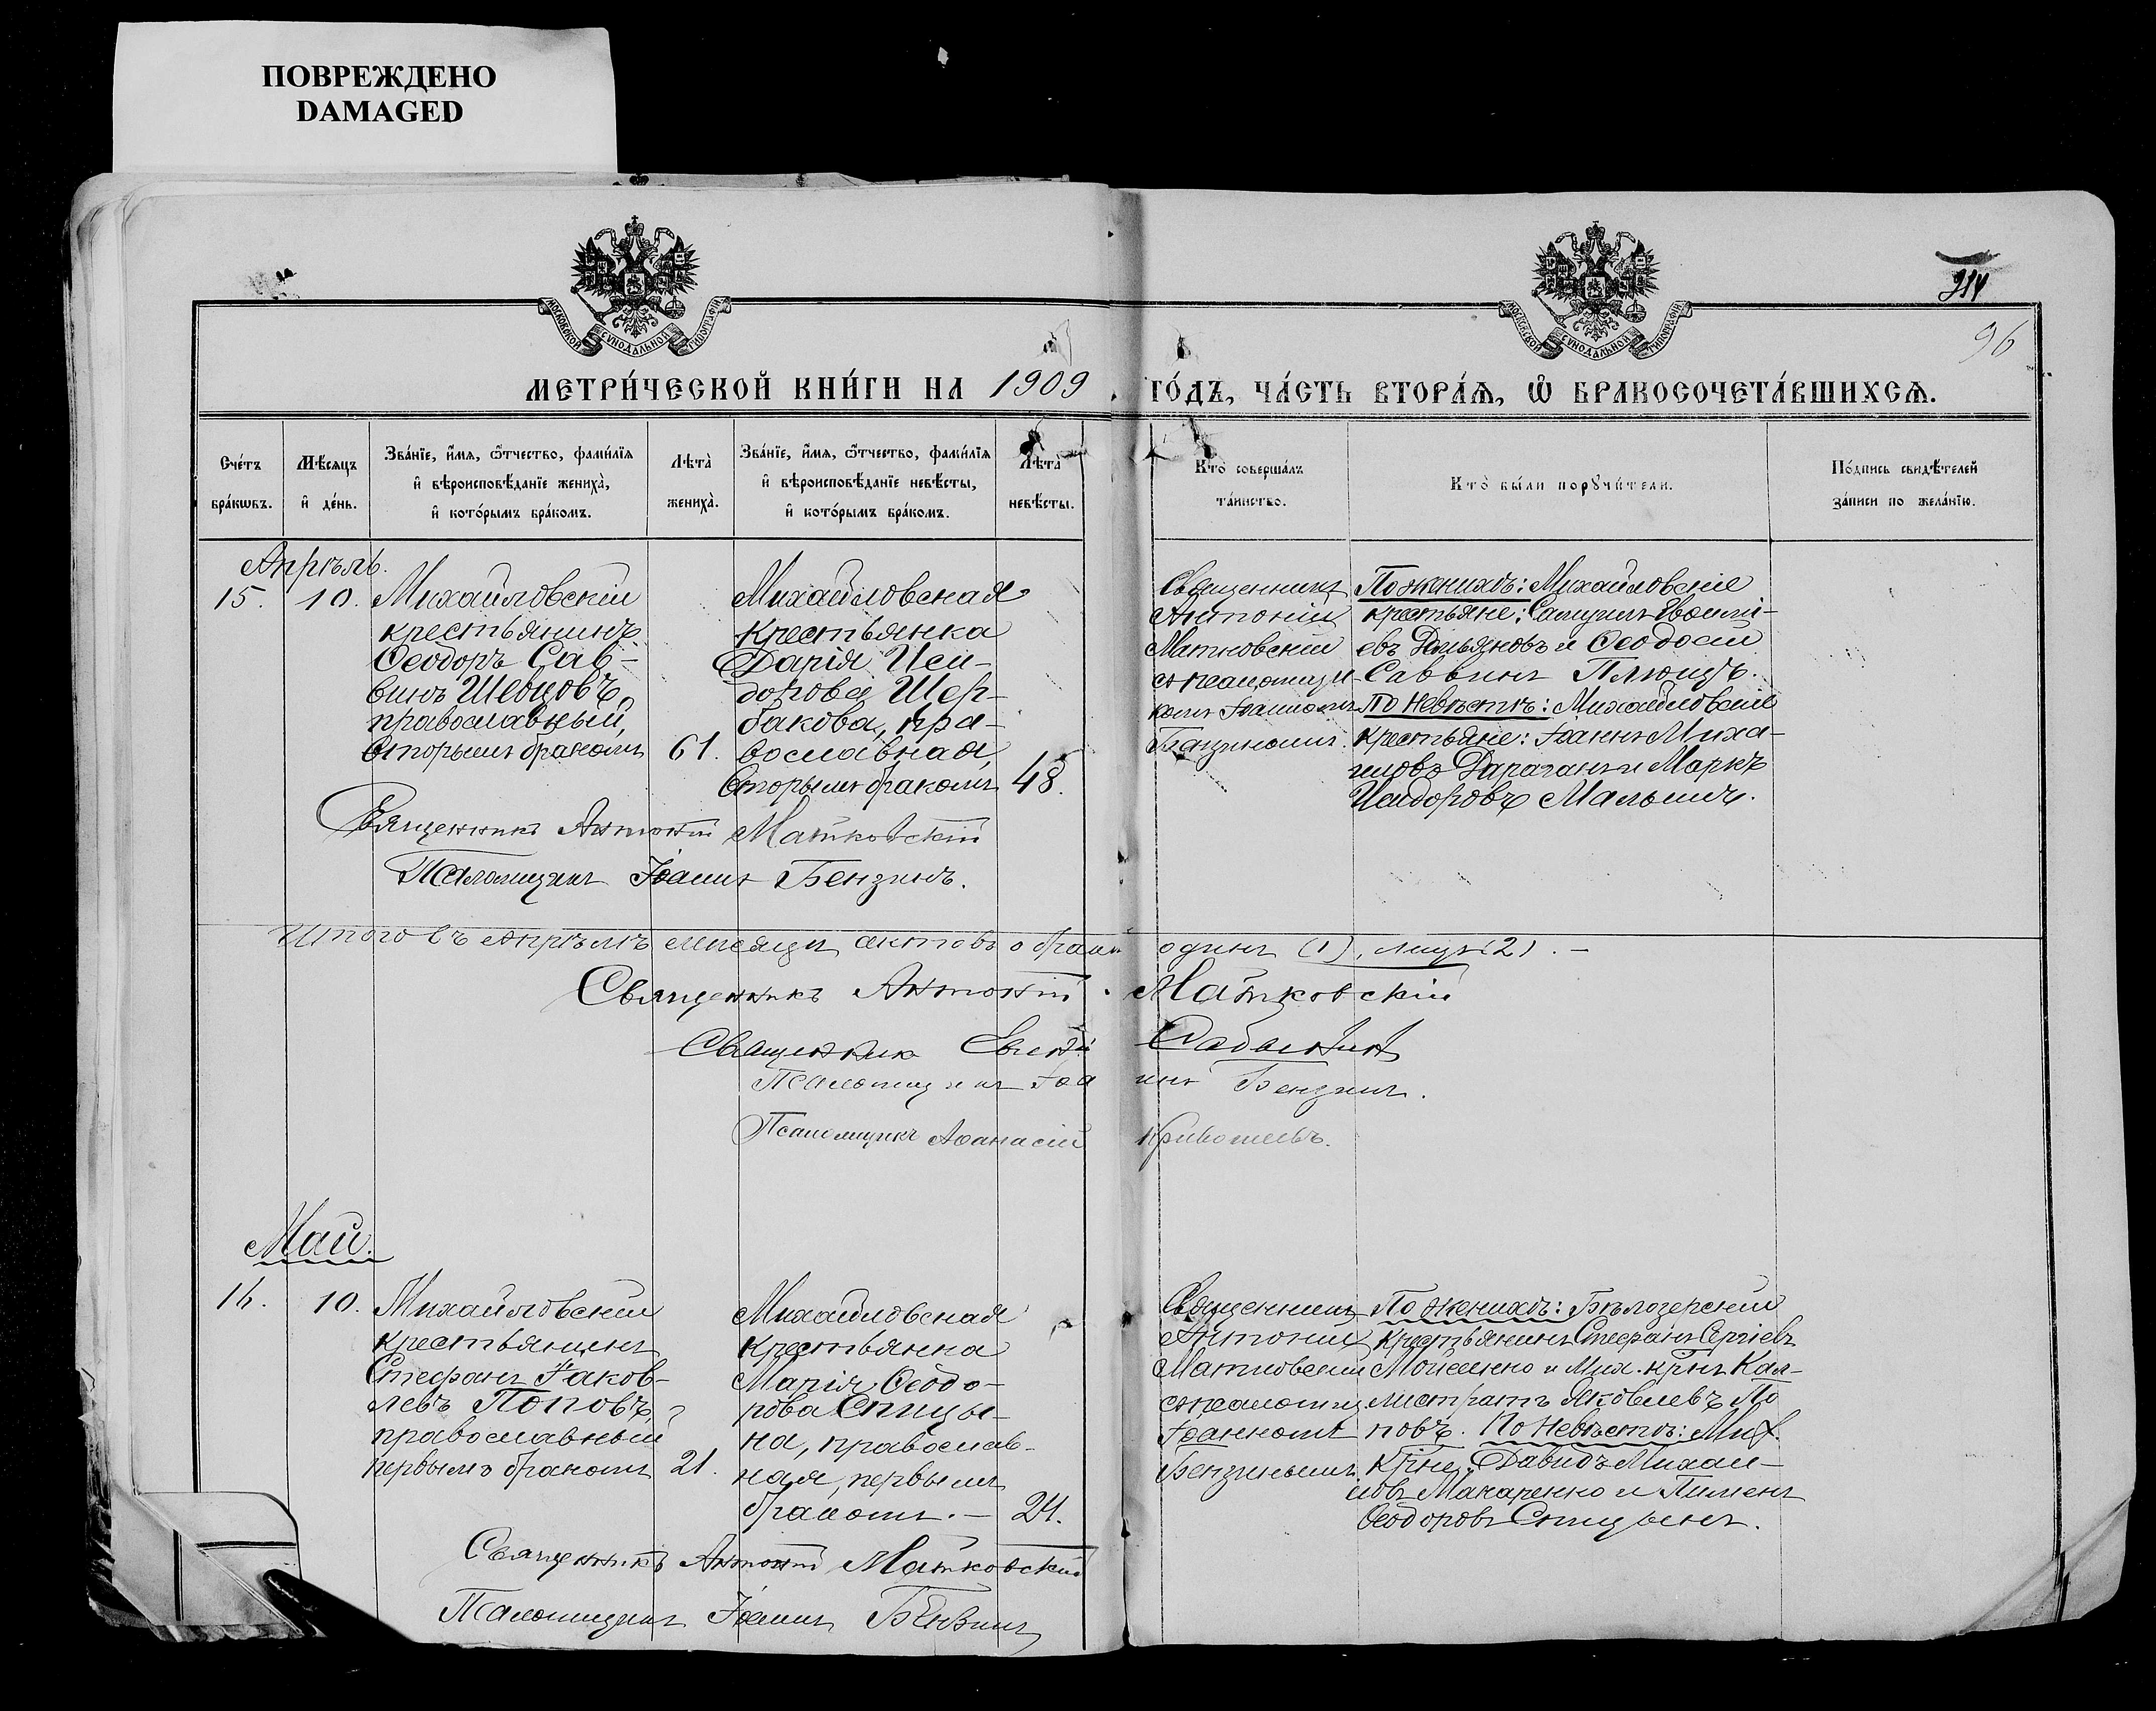 ПОВРЕЖДЕНО
DAMAGED
МОСКОВСКОЙ СѴНОДАЛЬНОЙ ТИПОГРАФІИ
МОСКОВСКОЙ СѴНОДАЛЬНОЙ ТИПОГРАФІИ
96
МЕТРИ́ЧЕСКОЙ КНИ́ГИ НА 1909 ГО́ДЪ, ЧА́СТЬ ВТОРА́Ѧ, Ѽ БРАКОСОЧЕТА́ВШИХСѦ.
Сче́тъ бра́кѡвъ.
Мѣ́сяцъ и҆ де́нь.
Зва́нїе, и҆́мѧ, ѻ҆́тчество, фами́лїѧ и҆ вѣроисповѣ́данїе жениха̀, и҆ кото́рымъ бра́комъ.
Лѣта̀ жениха̀.
Зва́нїе, и҆́мѧ, ѻ҆́тчество, фами́лїѧ и҆ вѣроисповѣ́данїе невѣ́сты, и҆ кото́рымъ бра́комъ.
Лѣта̀ невѣ́сты.
Кто̀ соверша́лъ та́инство.
Кто̀ бы́ли порꙋчи́тели.
По́дпись свидѣ́телей за́писи по жела́нїю.
Апрѣль.
15.
10.
Михайловскій
крестьянинъ
Ѳеодоръ Сав-
винъ Шевцовъ,
православный,
вторымъ бракомъ
61.
Михайловская
крестьянка
Дарія Иси-
дорова Щер-
бакова, пра-
вославная,
вторымъ бракомъ
48.
Священникъ
Антоній
Матковскій
съ псаломщи-
комъ Іоанномъ
Бензинымъ.
По женихѣ: Михайловскіе
крестьяне: Самуилъ
евъ Демьяновъ и Ѳеодосій
Саввинъ
По невѣстѣ: Михайловскіе
крестьяне: Іоаннъ Миха-
иловъ Дараганъ и Маркъ
Исидоровъ Малышъ.
Священникъ Антоній Матковскій
Псаломщикъ Іоаннъ Бензинъ.
Итого въ Апрѣлѣ мѣсяцѣ актовъ о бракѣ одинъ (1), лицъ (2). –
Священникъ Антоній Матковскій
Священник
Псаломщикъ Іоаннъ Бензинъ.
Псаломщикъ Аѳанасій Кривошеевъ.
Май.
16.
10.
Михайловскій
крестьянинъ
Стефанъ Іаков-
левъ Поповъ,
православный
первымъ бракомъ
21.
Михайловская
крестьянка
Марія Ѳеодо-
рова Спицы-
на, православ-
ная, первымъ
бракомъ. –
21.
Священникъ
Антоній
Матковскій
съ псаломщ.
Іоанномъ
Бензинымъ.
По женихѣ: Бѣлозерскій
крестьянинъ Стефанъ Сергіевъ
Моисеенко и Мих. кр͞нъ Кал-
листратъ Яковлевъ По
повъ. По невѣстѣ: Мих.
кр͞не: Давидъ Михаи-
ловъ Макаренко и Пименъ
Ѳеодоровъ Спицынъ.
Священникъ Антоній Матковскій
Псаломщикъ Іоаннъ Бензинъ